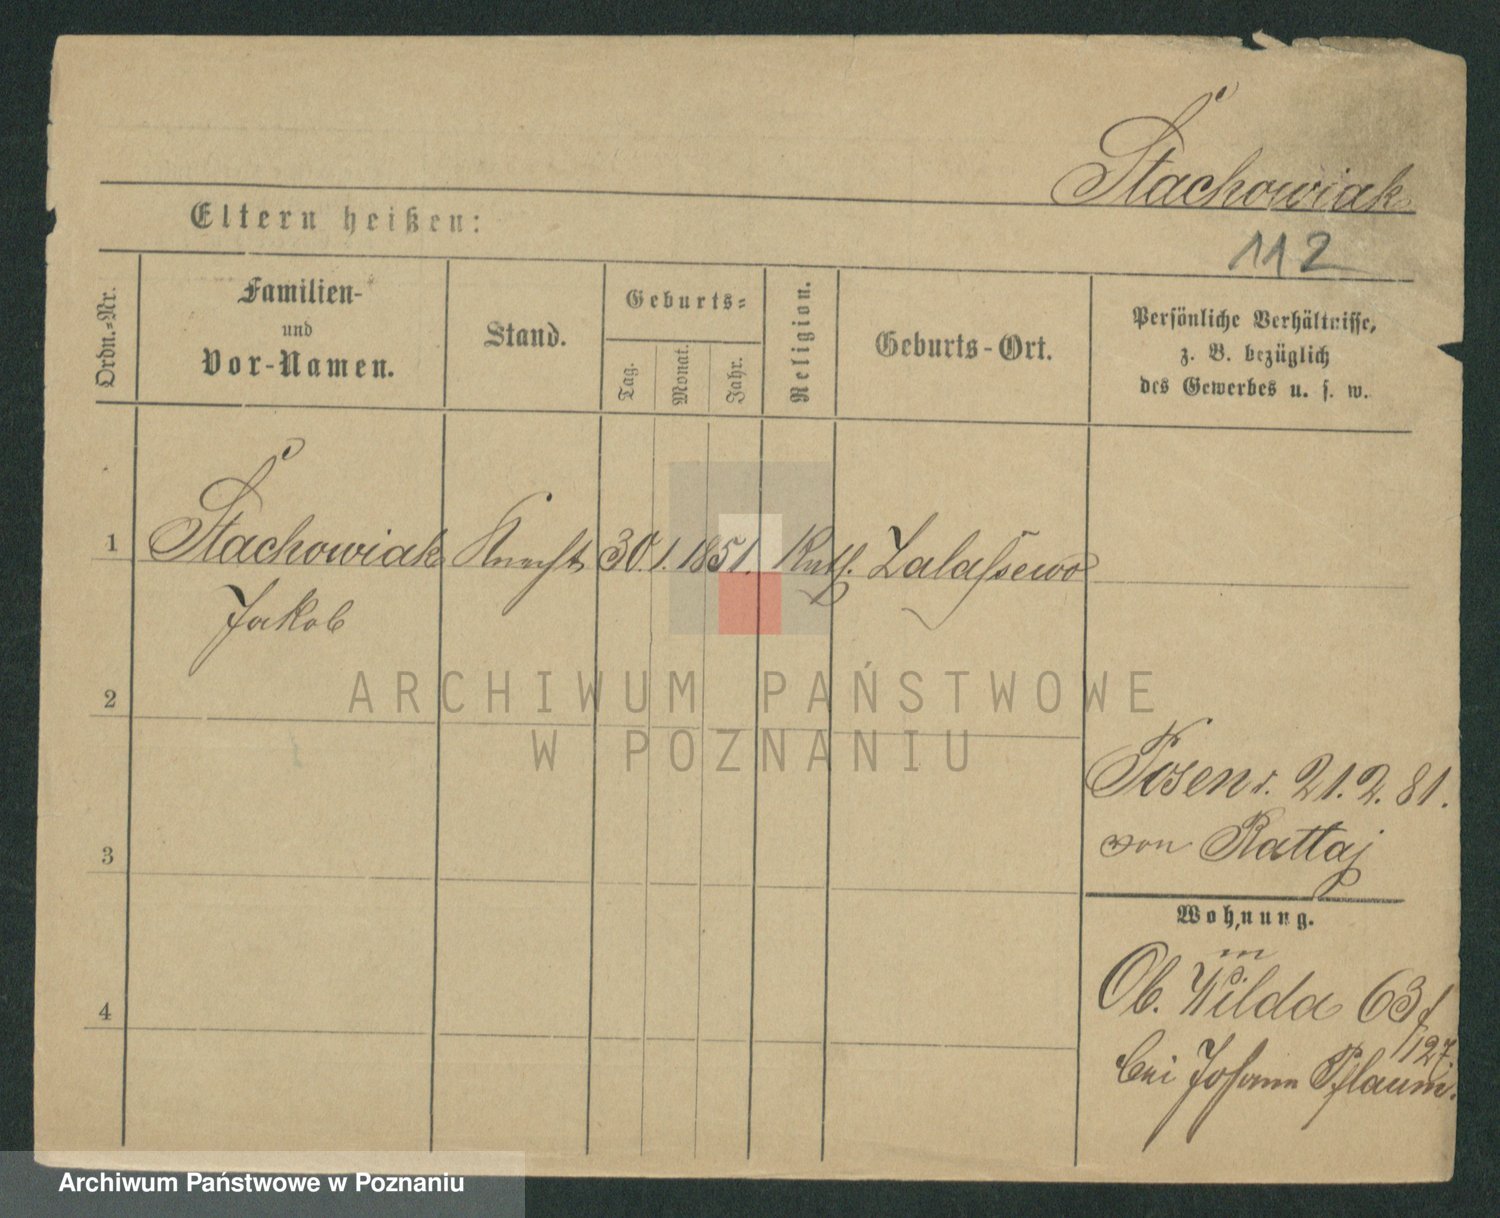 Stachowiak
112
Eltern heißen:
Ordn.=Nr.
Familien-
und
Vor-Namen.
Stand.
Geburts=
Tag.
Monat.
Jahr.
Religion.
Geburts-Ort.
Persönliche Verhältnisse,
z. B. bezüglich
des Gewerbes u. s. w.
1 Stachowiak Knecht 30. 1. 1851. Kath. Zalassewo
Jakob
2
3
4
Posen r. 21. 2. 81.
von Rattaj
Wohnung.
Ob. Wilda 63 f
/127.
bei Johann Pflaum.
ARCHIWUM PAŃSTWOWE
W POZNANIU
Archiwum Państwowe w Poznaniu